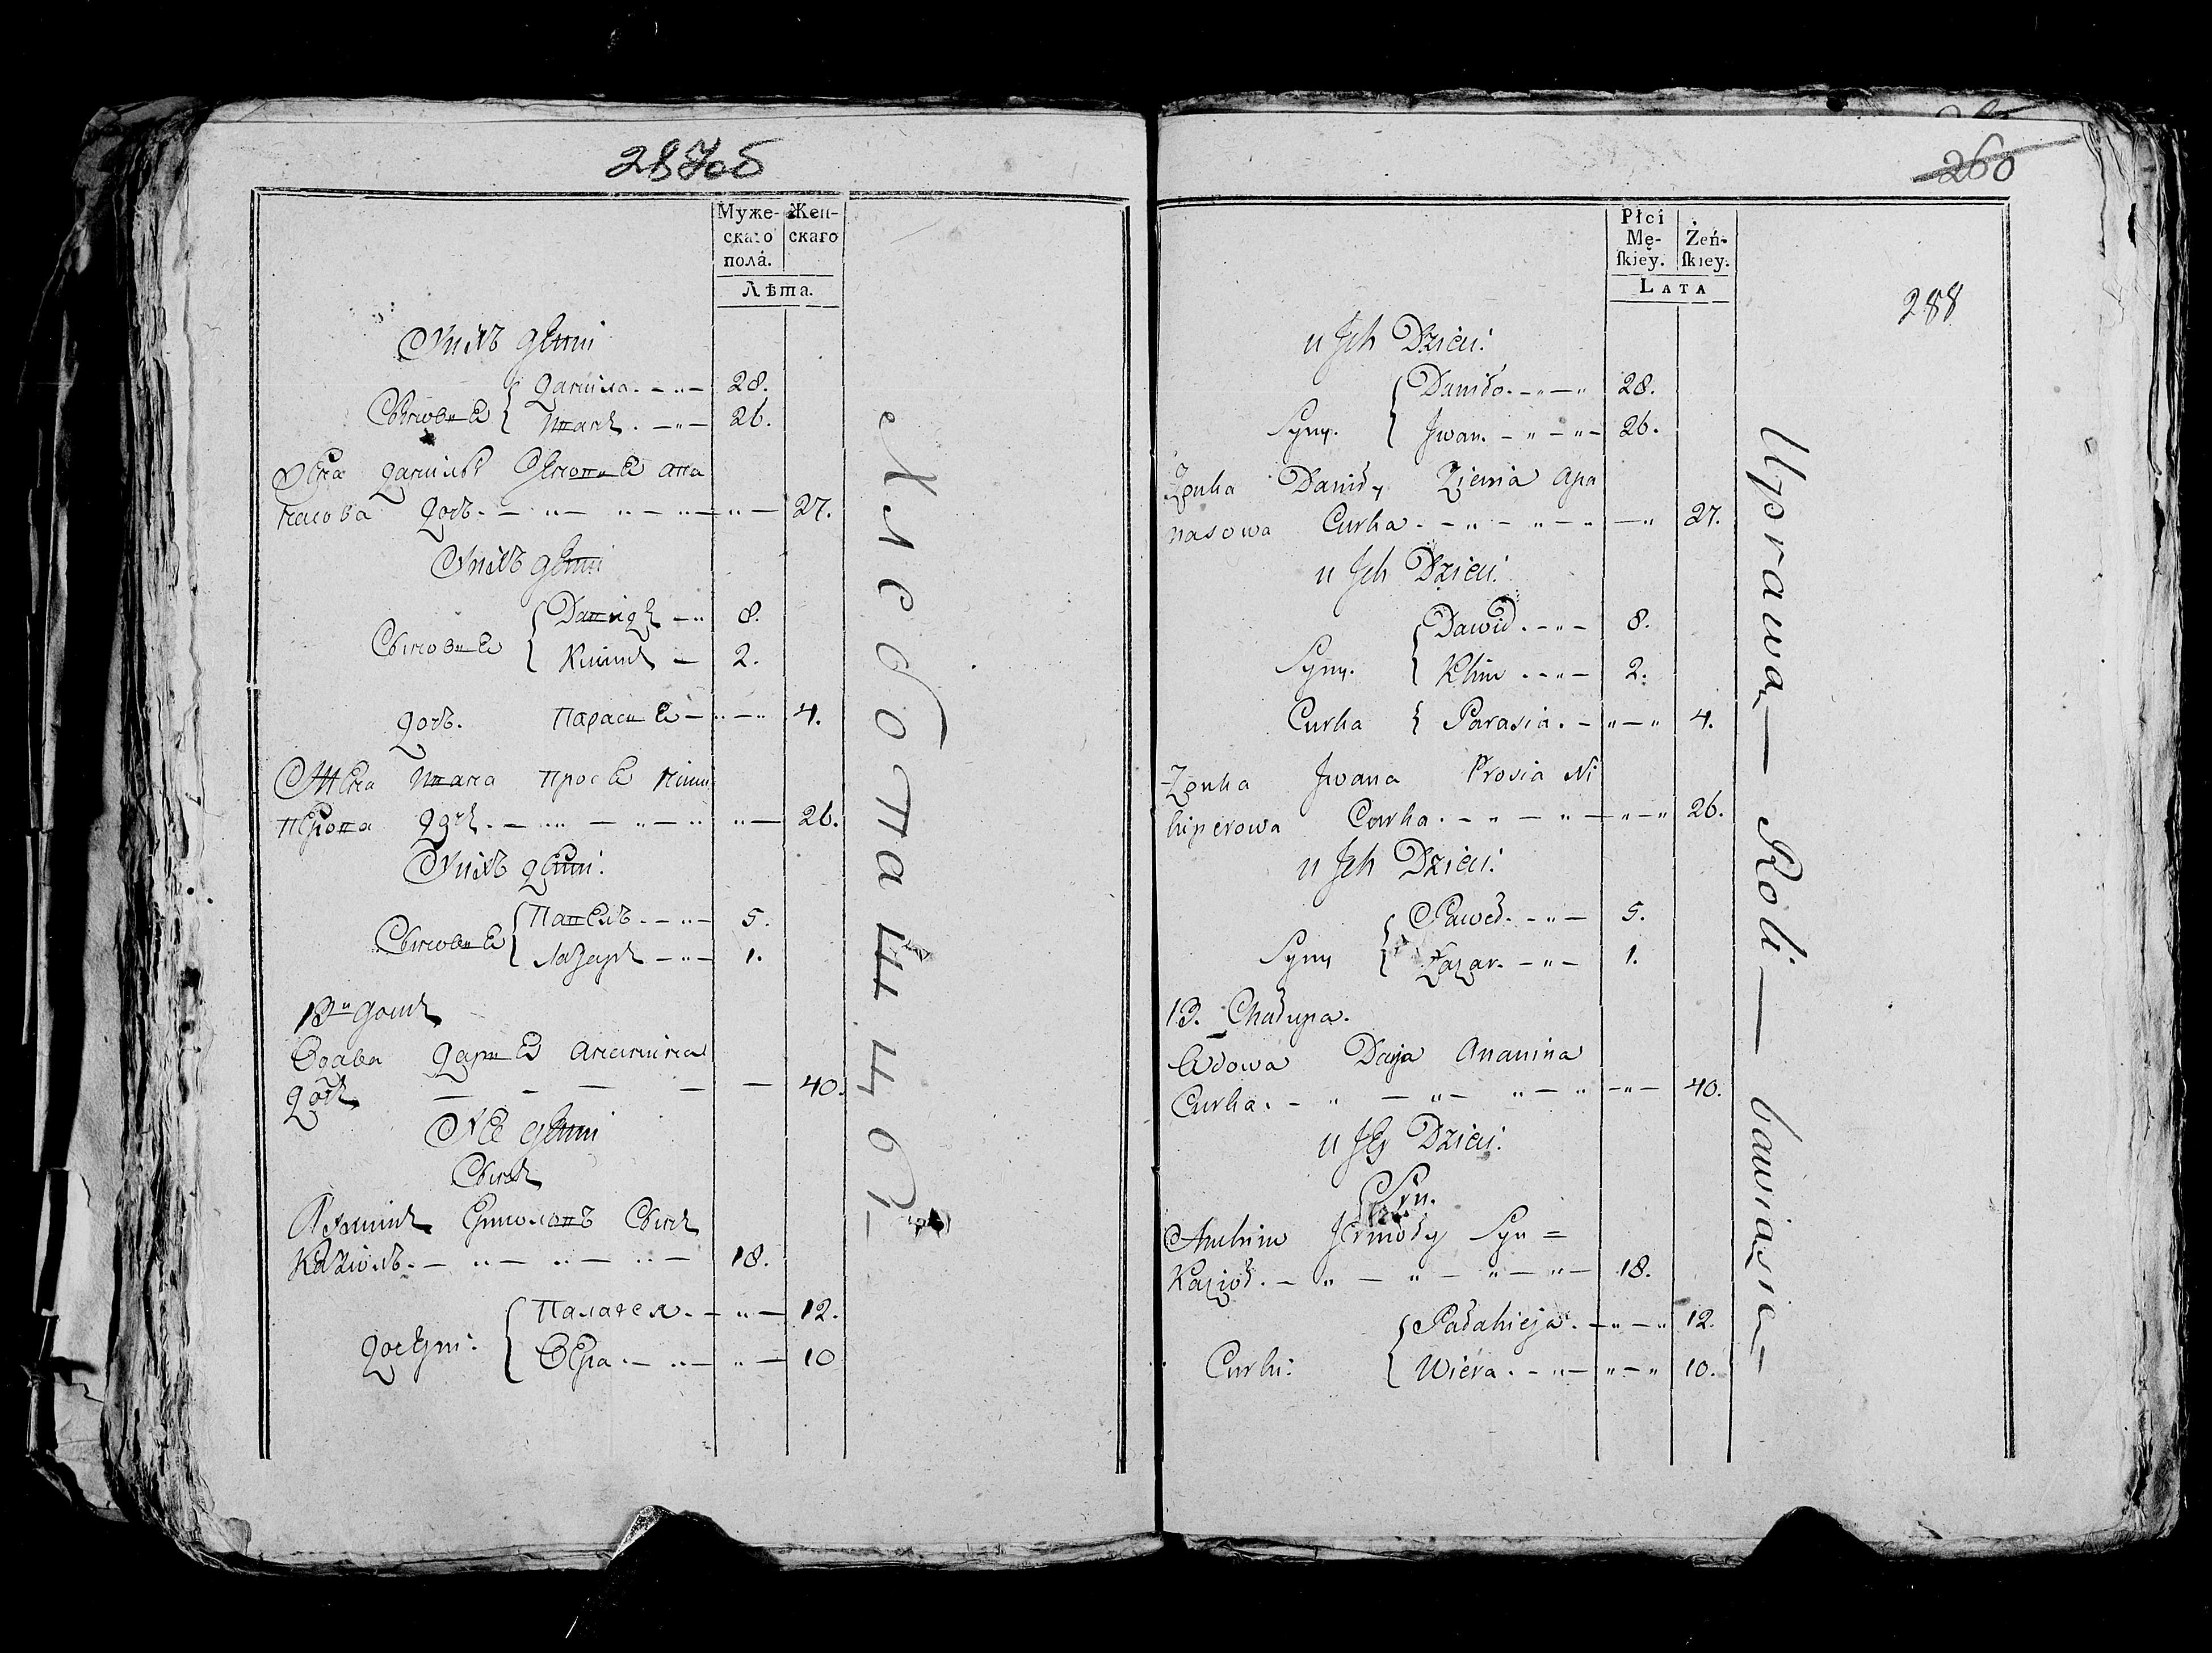 287об
Муже- Жен-
скаго скаго
пола.
Лѣта.
У нихъ дѣти
Сыновья { Данила. 28.
Иванъ. 26.
Жена Данилы Апа
насова дочь. 27.
У нихъ дѣти
Сыновья { Давидъ 8.
Климъ 2.
дочь. Парася 4.
Жена Ивана Прося Ники
перова дочь. 26.
У нихъ дѣти:
Сыновья { Павелъ. 5.
Лазарь 1.
13й домъ
Вдова Дарья Ананина
дочь 40.
У Ее дѣти
Сынъ
Сынъ
18.
дочери: { Палагея. 12.
Вера. 10
Хлебопашцовъ
260
288
Płci
Mę- Żeń-
skiey. skiey.
LATA
u Jch Dzieci:
Syny. { Daniło. 28.
Jwan. 26.
Żonka Daniły Zienia Apa
nasowa Curka. 27.
u Jch Dzieci:
Syny. { Dawid. 8.
Klim 2.
Curka { Parasia. 4.
Żonka Jwana Prosia Ni
kiperowa Curka. 26.
u Jch Dzieci:
Syny { Paweł. 5.
Łazar. 1.
13. Chałupa.
Wdowa Darja Ananina
Curka. 40.
u Jey Dzieci:
Syn.
Jermoły Syn =
Kazioł. 18.
Curki: { Pałahieja. 12.
Wiera. 10.
Uprawą Roli bawią się